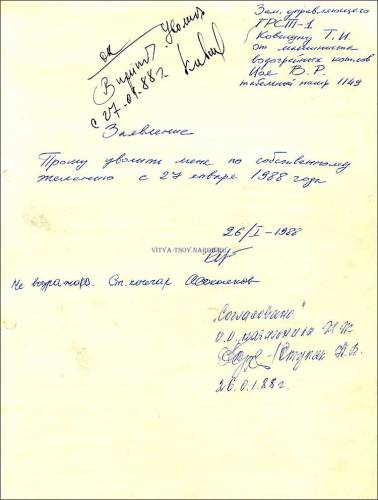 Зам. управляющего
ТРСТ-1
Ковшуну Т. И.
от машиниста
водогрейных котлов
Цоя В. Р.
табельный номер 1149
ок
В приказ. Уволить
с 27.01.88 г.
Заявление
Прошу уволить меня по собственному
желанию с 27 января 1988 года
26/I-1988
VITYA-TSOY.NAROD.RU
Не возражаю. Ст. кочегар
"Согласовано"
И.О. начальника
26.01.88 г.